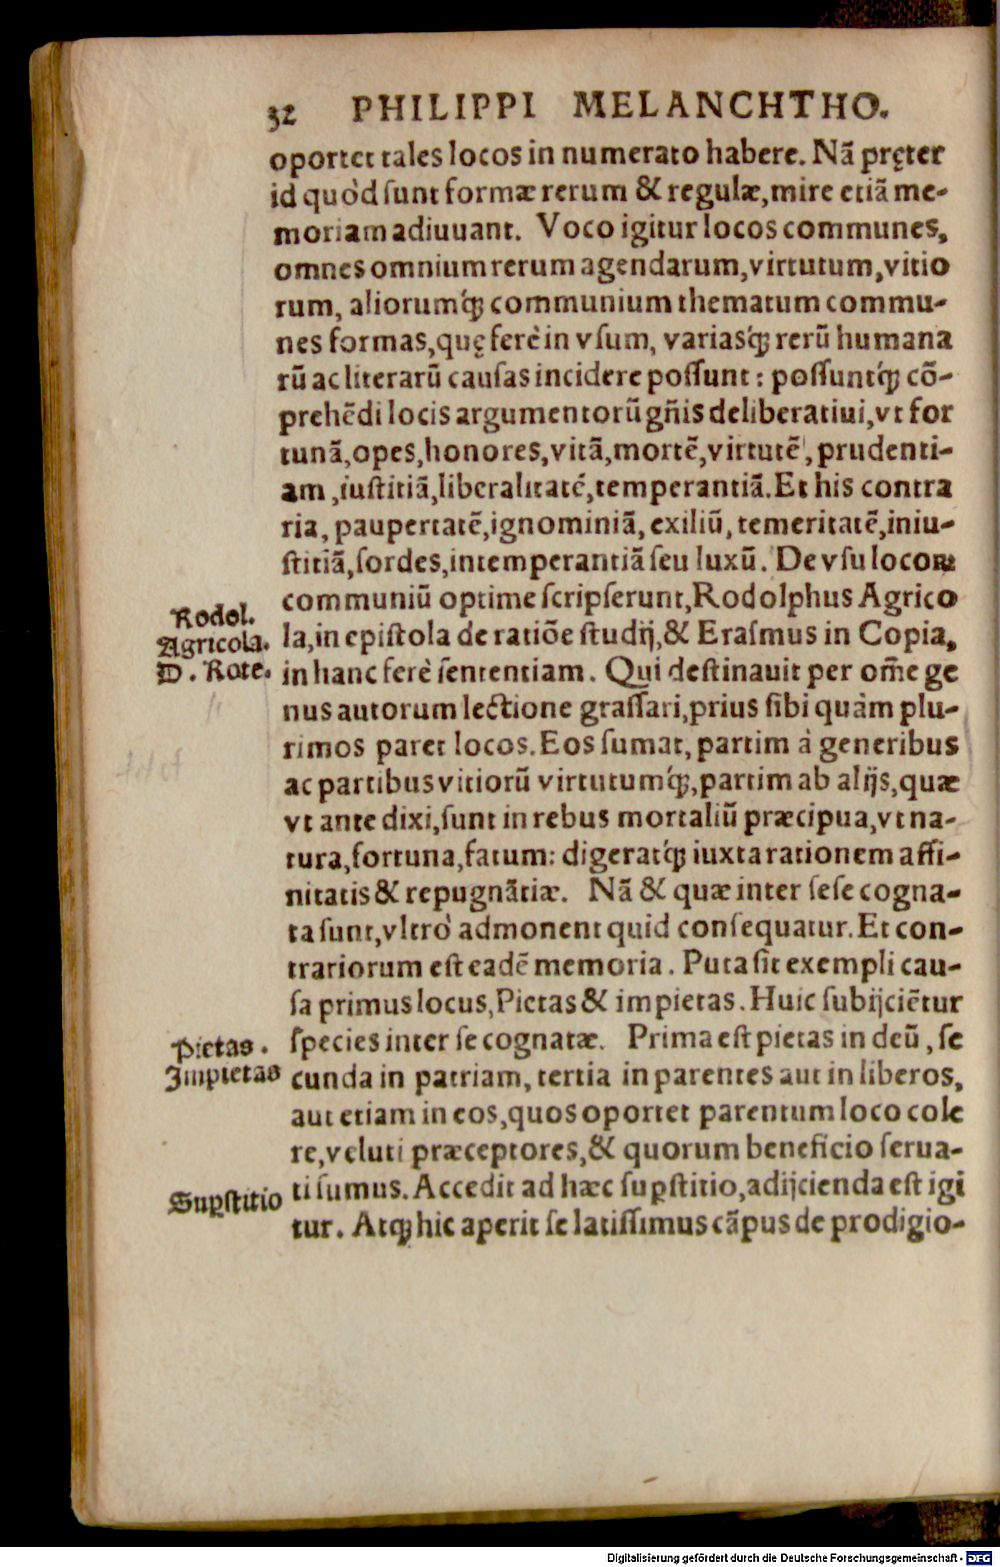 32 PHILIPPI MELANCHTHO.
oportet tales locos in numerato habere. Nã pręter
id quòd ſunt formæ rerum & regulæ, mire etiã me-
moriam adiuuant. Voco igitur locos communes,
omnes omnium rerum agendarum, virtutum, vitio
rum, aliorumq́ꝫ communium thematum commu-
nes formas, quę ferè in vſum, variasq́ꝫ rerũ humana
rũ ac literarũ cauſas incidere poſſunt: poſſuntq́ꝫ cõ-
prehẽdi locis argumentorũ gñis deliberatiui, vt for
tunã, opes, honores, vitã, mortẽ, virtutẽ, prudenti-
am, iuſtitiã, liberalitatẽ, temperantiã. Et his contra
ria, paupertatẽ, ignominiã, exiliũ, temeritatẽ, iniu-
ſtitiã, ſordes, intemperantiã ſeu luxũ. De vſu locoꝝ
communiũ optime ſcripſerunt, Rodolphus Agrico
Rodol.
Agricola.
D. Rote.
la, in epiſtola de ratiõe ſtudij, & Eraſmus in Copia,
in hanc ferè ſententiam. Qui deſtinauit per om̃e ge
nus autorum lectione graſſari, prius ſibi quàm plu-
rimos paret locos. Eos ſumat, partim à generibus
ac partibus vitiorũ virtutumq́ꝫ, partim ab alijs, quæ
vt ante dixi, ſunt in rebus mortaliũ præcipua, vt na-
tura, fortuna, fatum: digeratq́ꝫ iuxta rationem affi-
nitatis & repugnãtiæ. Nã & quæ inter ſeſe cogna-
ta ſunt, vltrò admonent quid conſequatur. Et con-
trariorum eſt eadẽ memoria. Puta ſit exempli cau-
ſa primus locus, Pietas & impietas. Huic ſubijciẽtur
Pietas.
Impietas
ſpecies inter ſe cognatæ. Prima eſt pietas in deũ, ſe
cunda in patriam, tertia in parentes aut in liberos,
aut etiam in eos, quos oportet parentum loco cole
re, veluti præceptores, & quorum beneficio ſerua-
Suꝑſtitio
ti ſumus. Accedit ad hæc ſuꝑſtitio, adijcienda eſt igi
tur. Atqꝫ hic aperit ſe latiſſimus cãpus de prodigio-
Digitalisierung gefördert durch die Deutsche Forschungsgemeinschaft - DFG